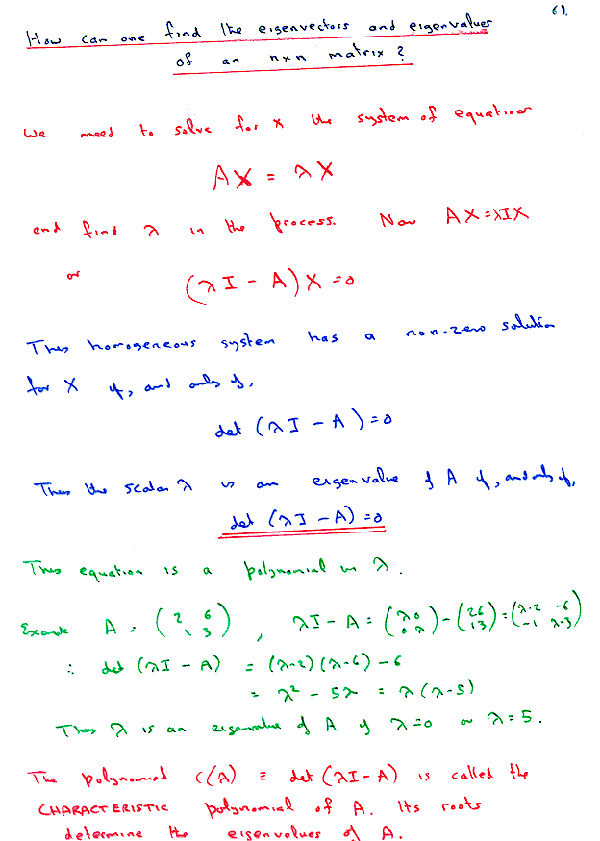 61.
How can one find the eigenvectors and eigenvalues
of an n×n matrix?
We need to solve for X the system of equations
AX = λX
and find λ in the process. Now AX = λIX
or
(λI - A)X = 0
This homogeneous system has a non-zero solution
for X if, and only if,
det (λI - A) = 0
Thus the scalar λ is an eigenvalue of A if, and only if,
det (λI - A) = 0
This equation is a polynomial in λ.
Example A = (2 6 / 1 3), λI - A = (λ 0 / 0 λ) - (2 6 / 1 3) = (λ-2 -6 / -1 λ-3)
∴ det (λI - A) = (λ-2)(λ-6) - 6
= λ² - 5λ = λ(λ-5)
Thus λ is an eigenvalue of A if λ=0 or λ=5.
The polynomial C(A) = det (λI - A) is called the
CHARACTERISTIC polynomial of A. Its roots
determine the eigenvalues of A.